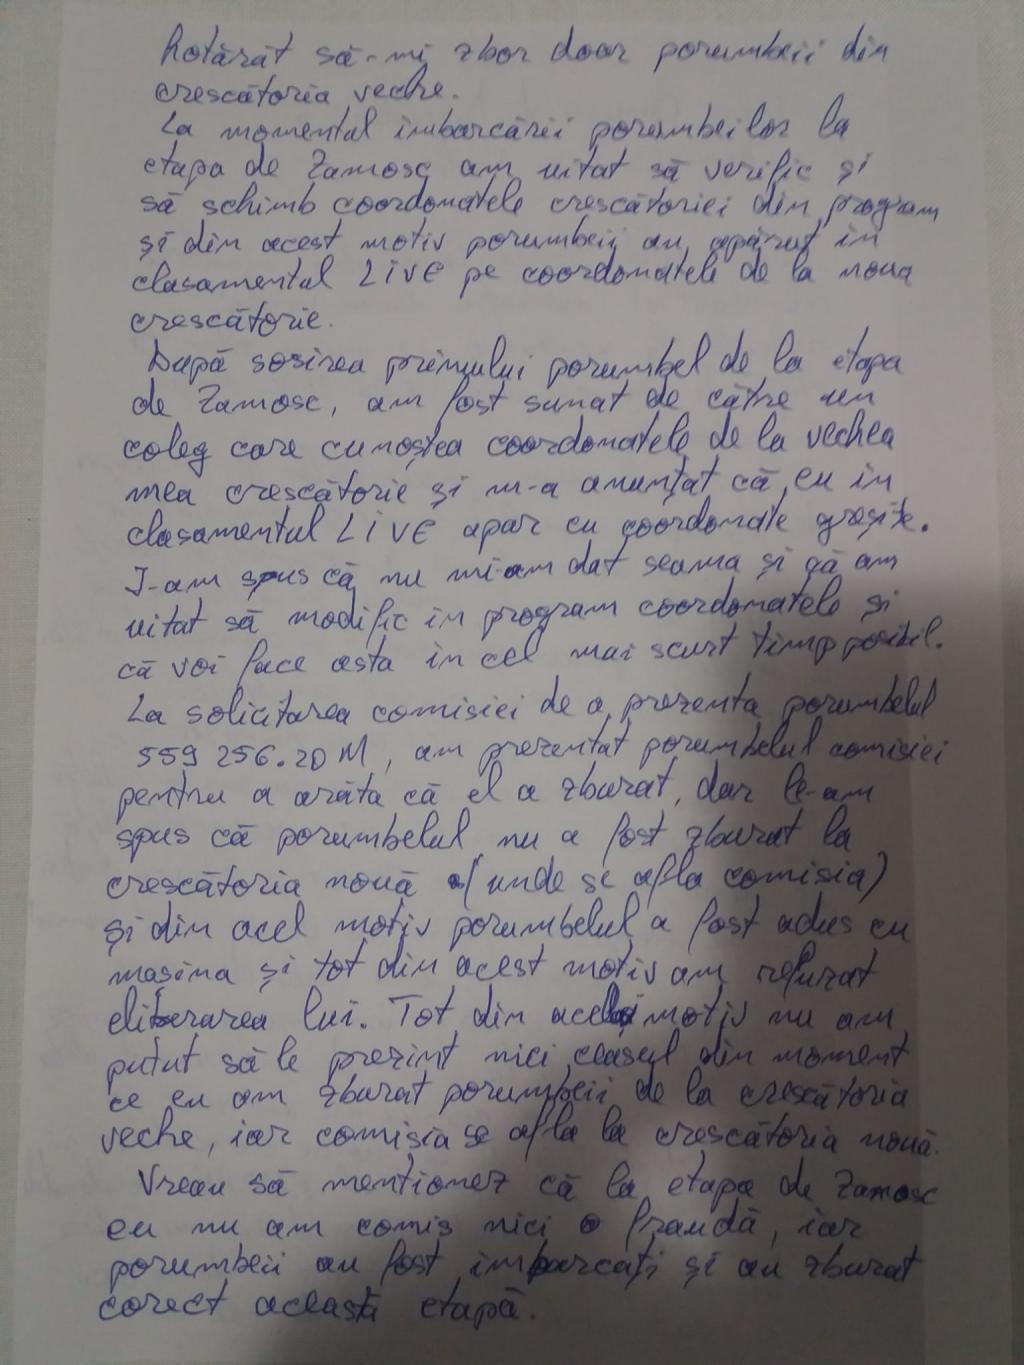 hotărât să-mi zbor doar porumbeii din
crescătoria veche.
La momentul îmbarcării porumbeilor la
etapa de Zamosc am uitat să verific și
să schimb coordonatele crescătoriei din program
și din acest motiv porumbeii au apărut în
clasamentul LIVE pe coordonatele de la noua
crescătorie.
După sosirea primului porumbel de la etapa
de Zamosc, am fost sunat de către un
coleg care cunoștea coordonatele de la vechea
mea crescătorie și m-a anunțat că eu în
clasamentul LIVE apar cu coordonate greșite.
I-am spus că nu mi-am dat seama și că am
uitat să modific în program coordonatele și
că voi face asta în cel mai scurt timp posibil.
La solicitarea comisiei de a prezenta porumbelul
559 256.20 M, am prezentat porumbelul comisiei
pentru a arăta că el a zburat, dar le-am
spus că porumbelul nu a fost zburat la
crescătoria nouă (unde se afla comisia)
și din acel motiv porumbelul a fost adus cu
mașina și tot din acest motiv am refuzat
eliberarea lui. Tot din același motiv nu am
putut să le prezint nici ceasul din moment
ce eu am zburat porumbeii de la crescătoria
veche, iar comisia se afla la crescătoria nouă.
Vreau să menționez că la etapa de Zamosc
eu nu am comis nici o fraudă, iar
porumbeii au fost îmbarcați și au zburat
corect această etapă.